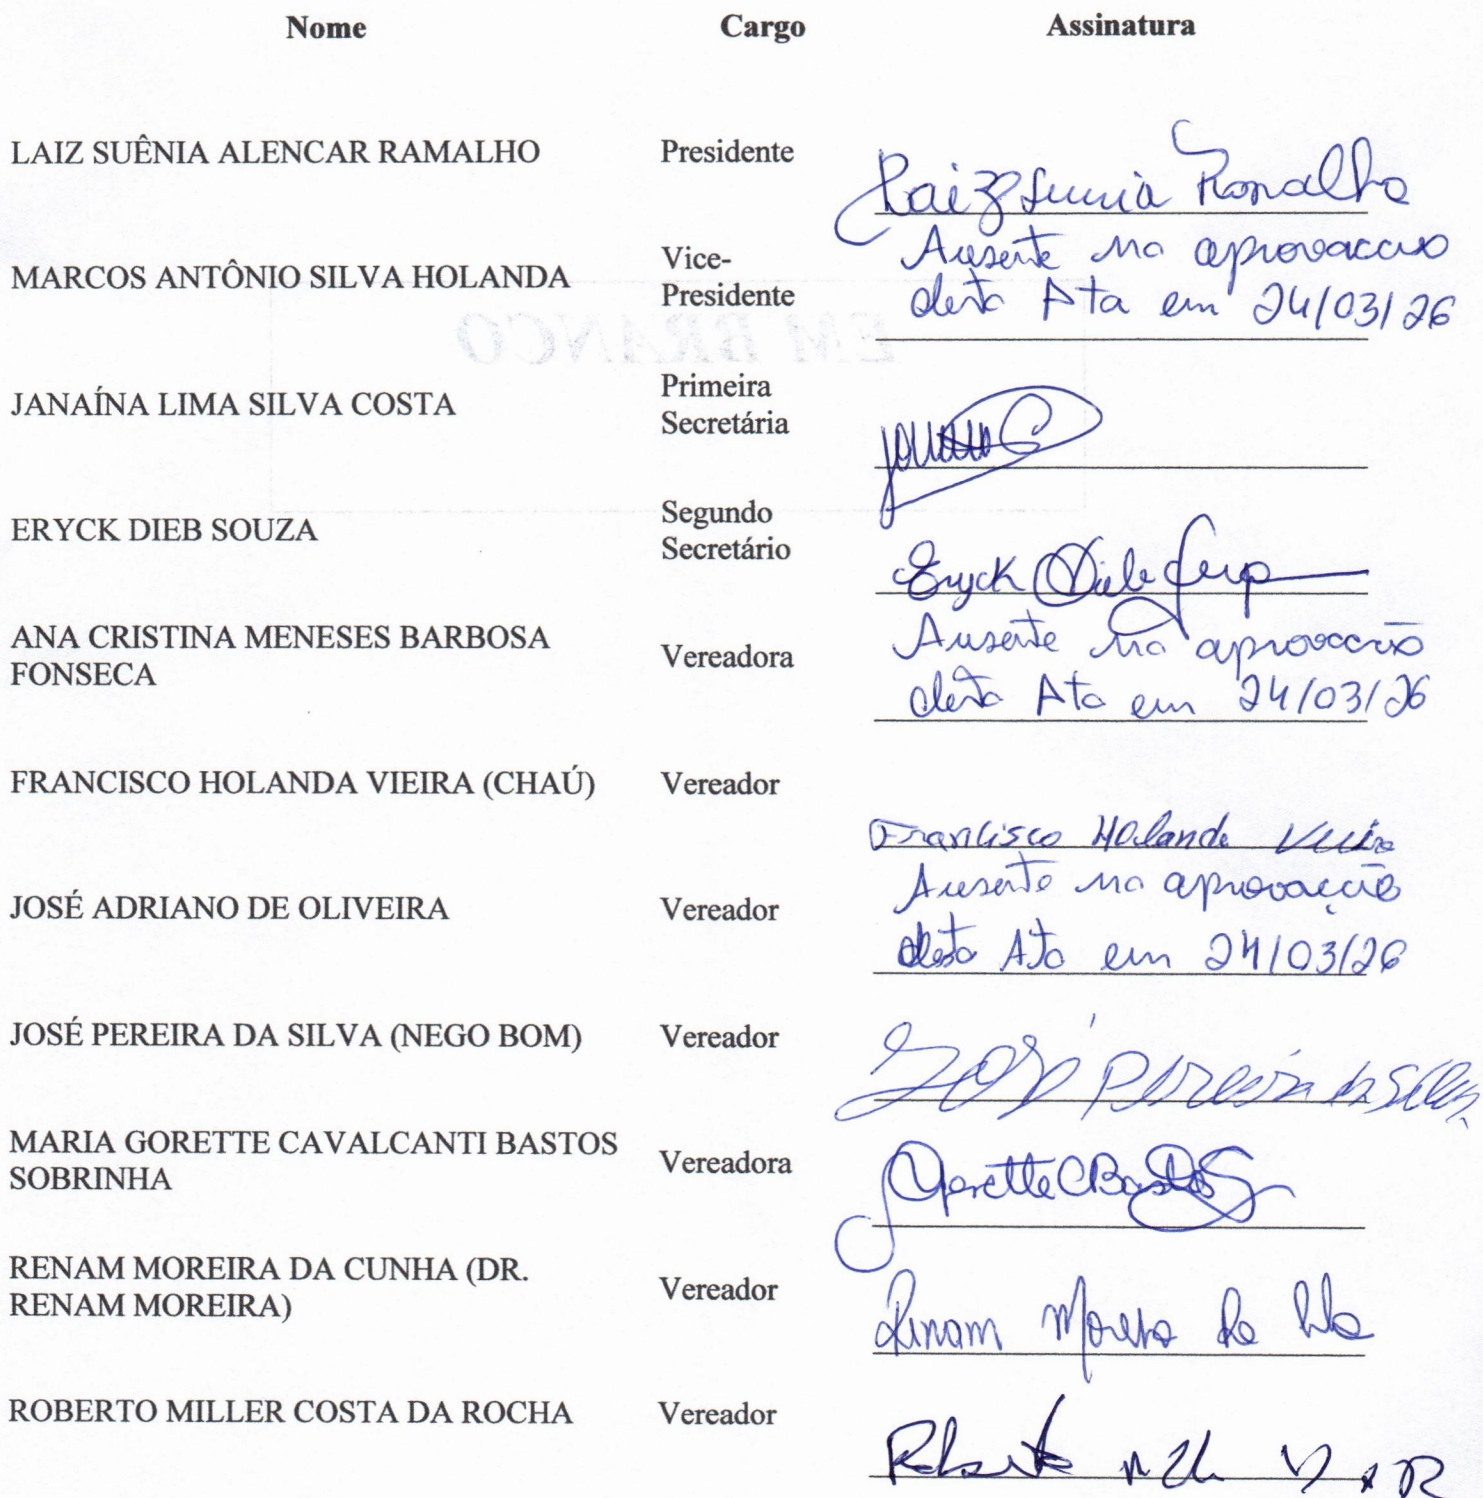 Nome Cargo Assinatura
LAIZ SUÊNIA ALENCAR RAMALHO Presidente Laiz Suenia Ramalho
MARCOS ANTÔNIO SILVA HOLANDA Vice-
Presidente
Ausente na aprovação
desta Ata em 24/03/26
EM BRANCO
JANAÍNA LIMA SILVA COSTA Primeira
Secretária
ERYCK DIEB SOUZA Segundo
Secretário
Eryck Dieb Souza
ANA CRISTINA MENESES BARBOSA
FONSECA
Vereadora
Ausente na aprovação
desta Ata em 24/03/26
FRANCISCO HOLANDA VIEIRA (CHAÚ) Vereador
Francisco Holanda Vieira
JOSÉ ADRIANO DE OLIVEIRA Vereador
Ausente na aprovação
desta Ata em 24/03/26
JOSÉ PEREIRA DA SILVA (NEGO BOM) Vereador
José Pereira da Silva
MARIA GORETTE CAVALCANTI BASTOS
SOBRINHA
Vereadora
Gorette C Bastos S
RENAM MOREIRA DA CUNHA (DR.
RENAM MOREIRA)
Vereador
Renam Moreira da
ROBERTO MILLER COSTA DA ROCHA Vereador
Roberto